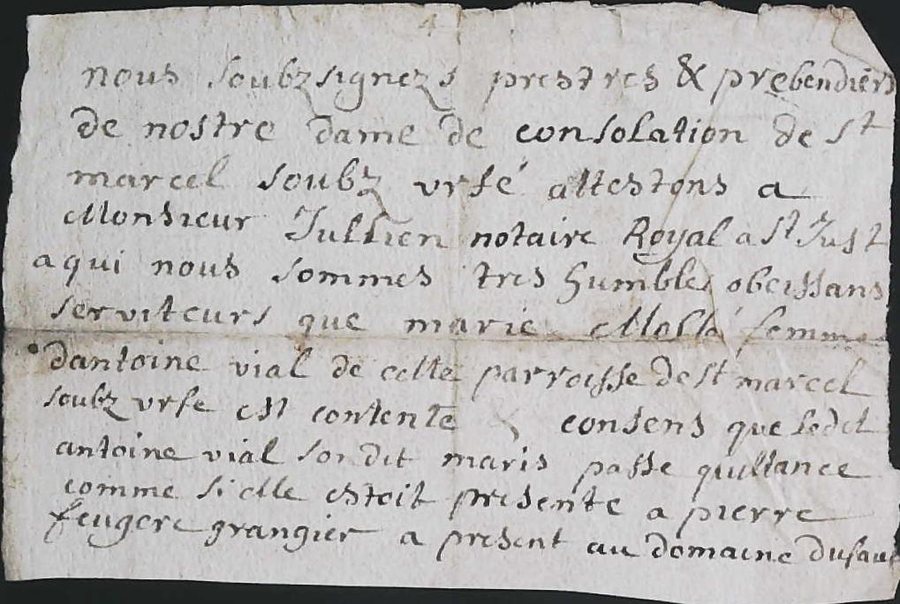 nous soubzsignezs prestres & prebendiers
de nostre dame de consolation de st
marcel soubz urfé attestons a
Monsieur Jullien notaire Royal a st Just
a qui nous sommes tres humbles obeissans
serviteurs que marie Mollé femme
dantoine vial de cette parroisse de st marcel
soubz urfe est contente & consens que ledit
antoine vial sondit maris passe quittance
comme si elle estoit presente a pierre
feugere grangier a present au domaine du